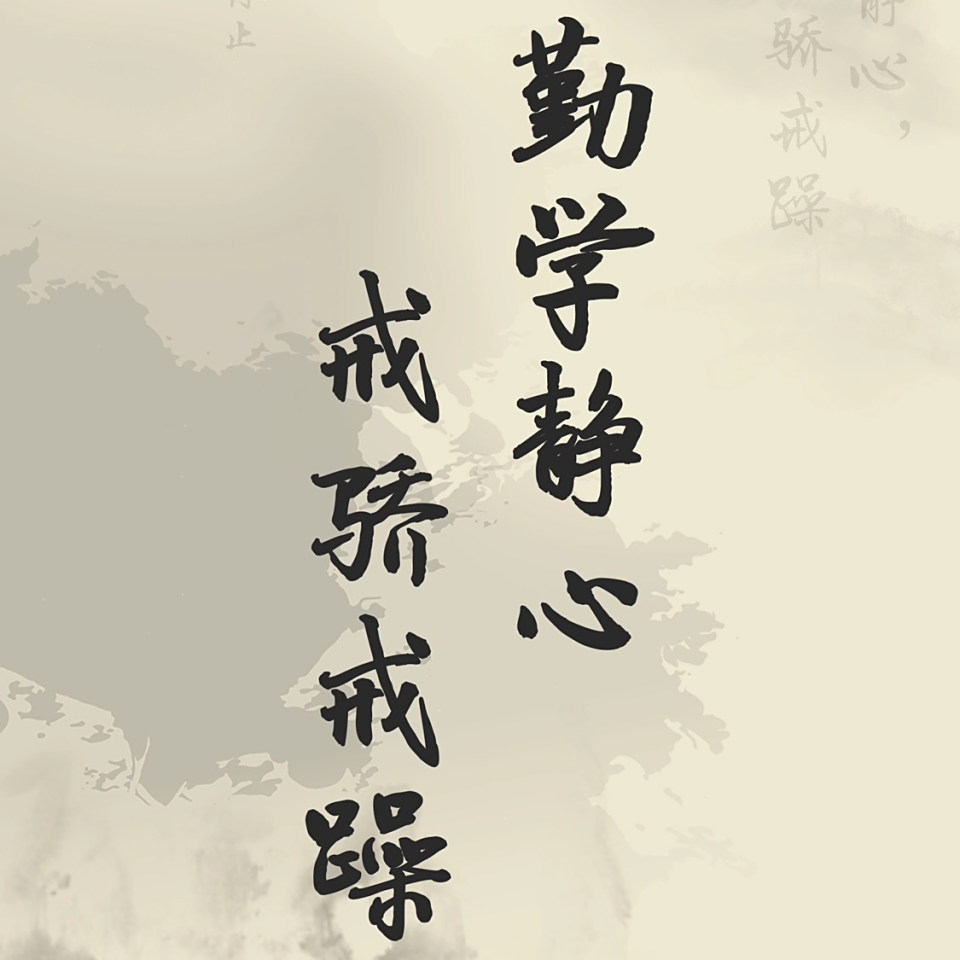 勤学静心
戒骄戒躁
静心，
骄戒躁
止